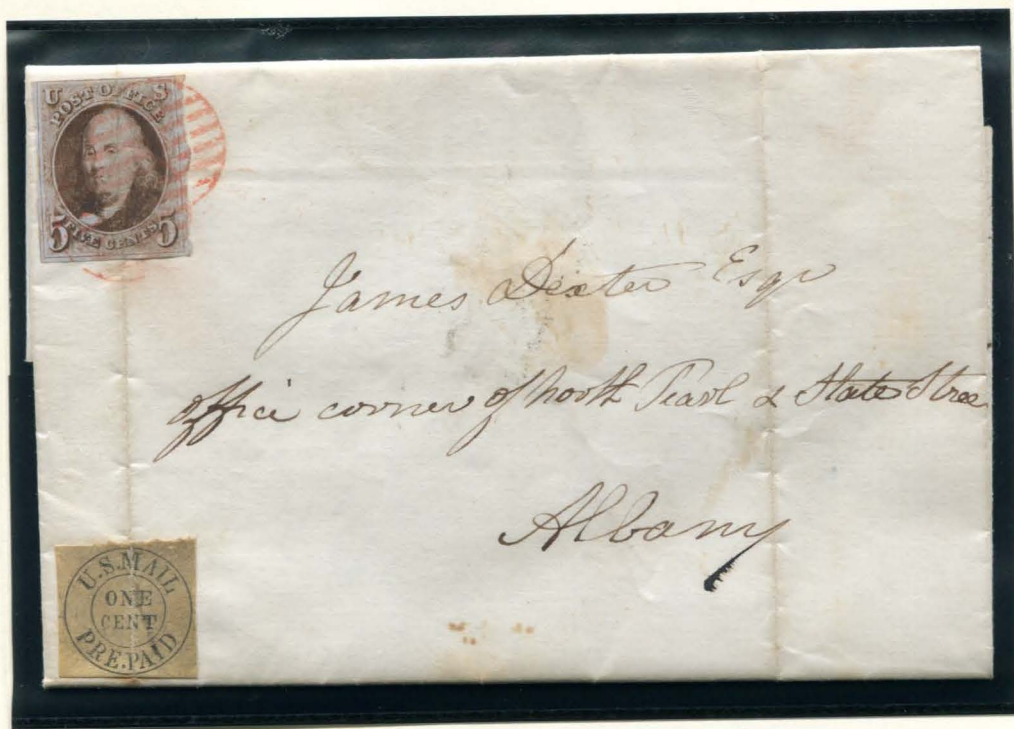 U S
POST OFFICE
5 FIVE CENTS 5
James Dexter Esqr
office corner of North Pearl & State Stree
Albany
U.S.MAIL
ONE
CENT
PRE.PAID